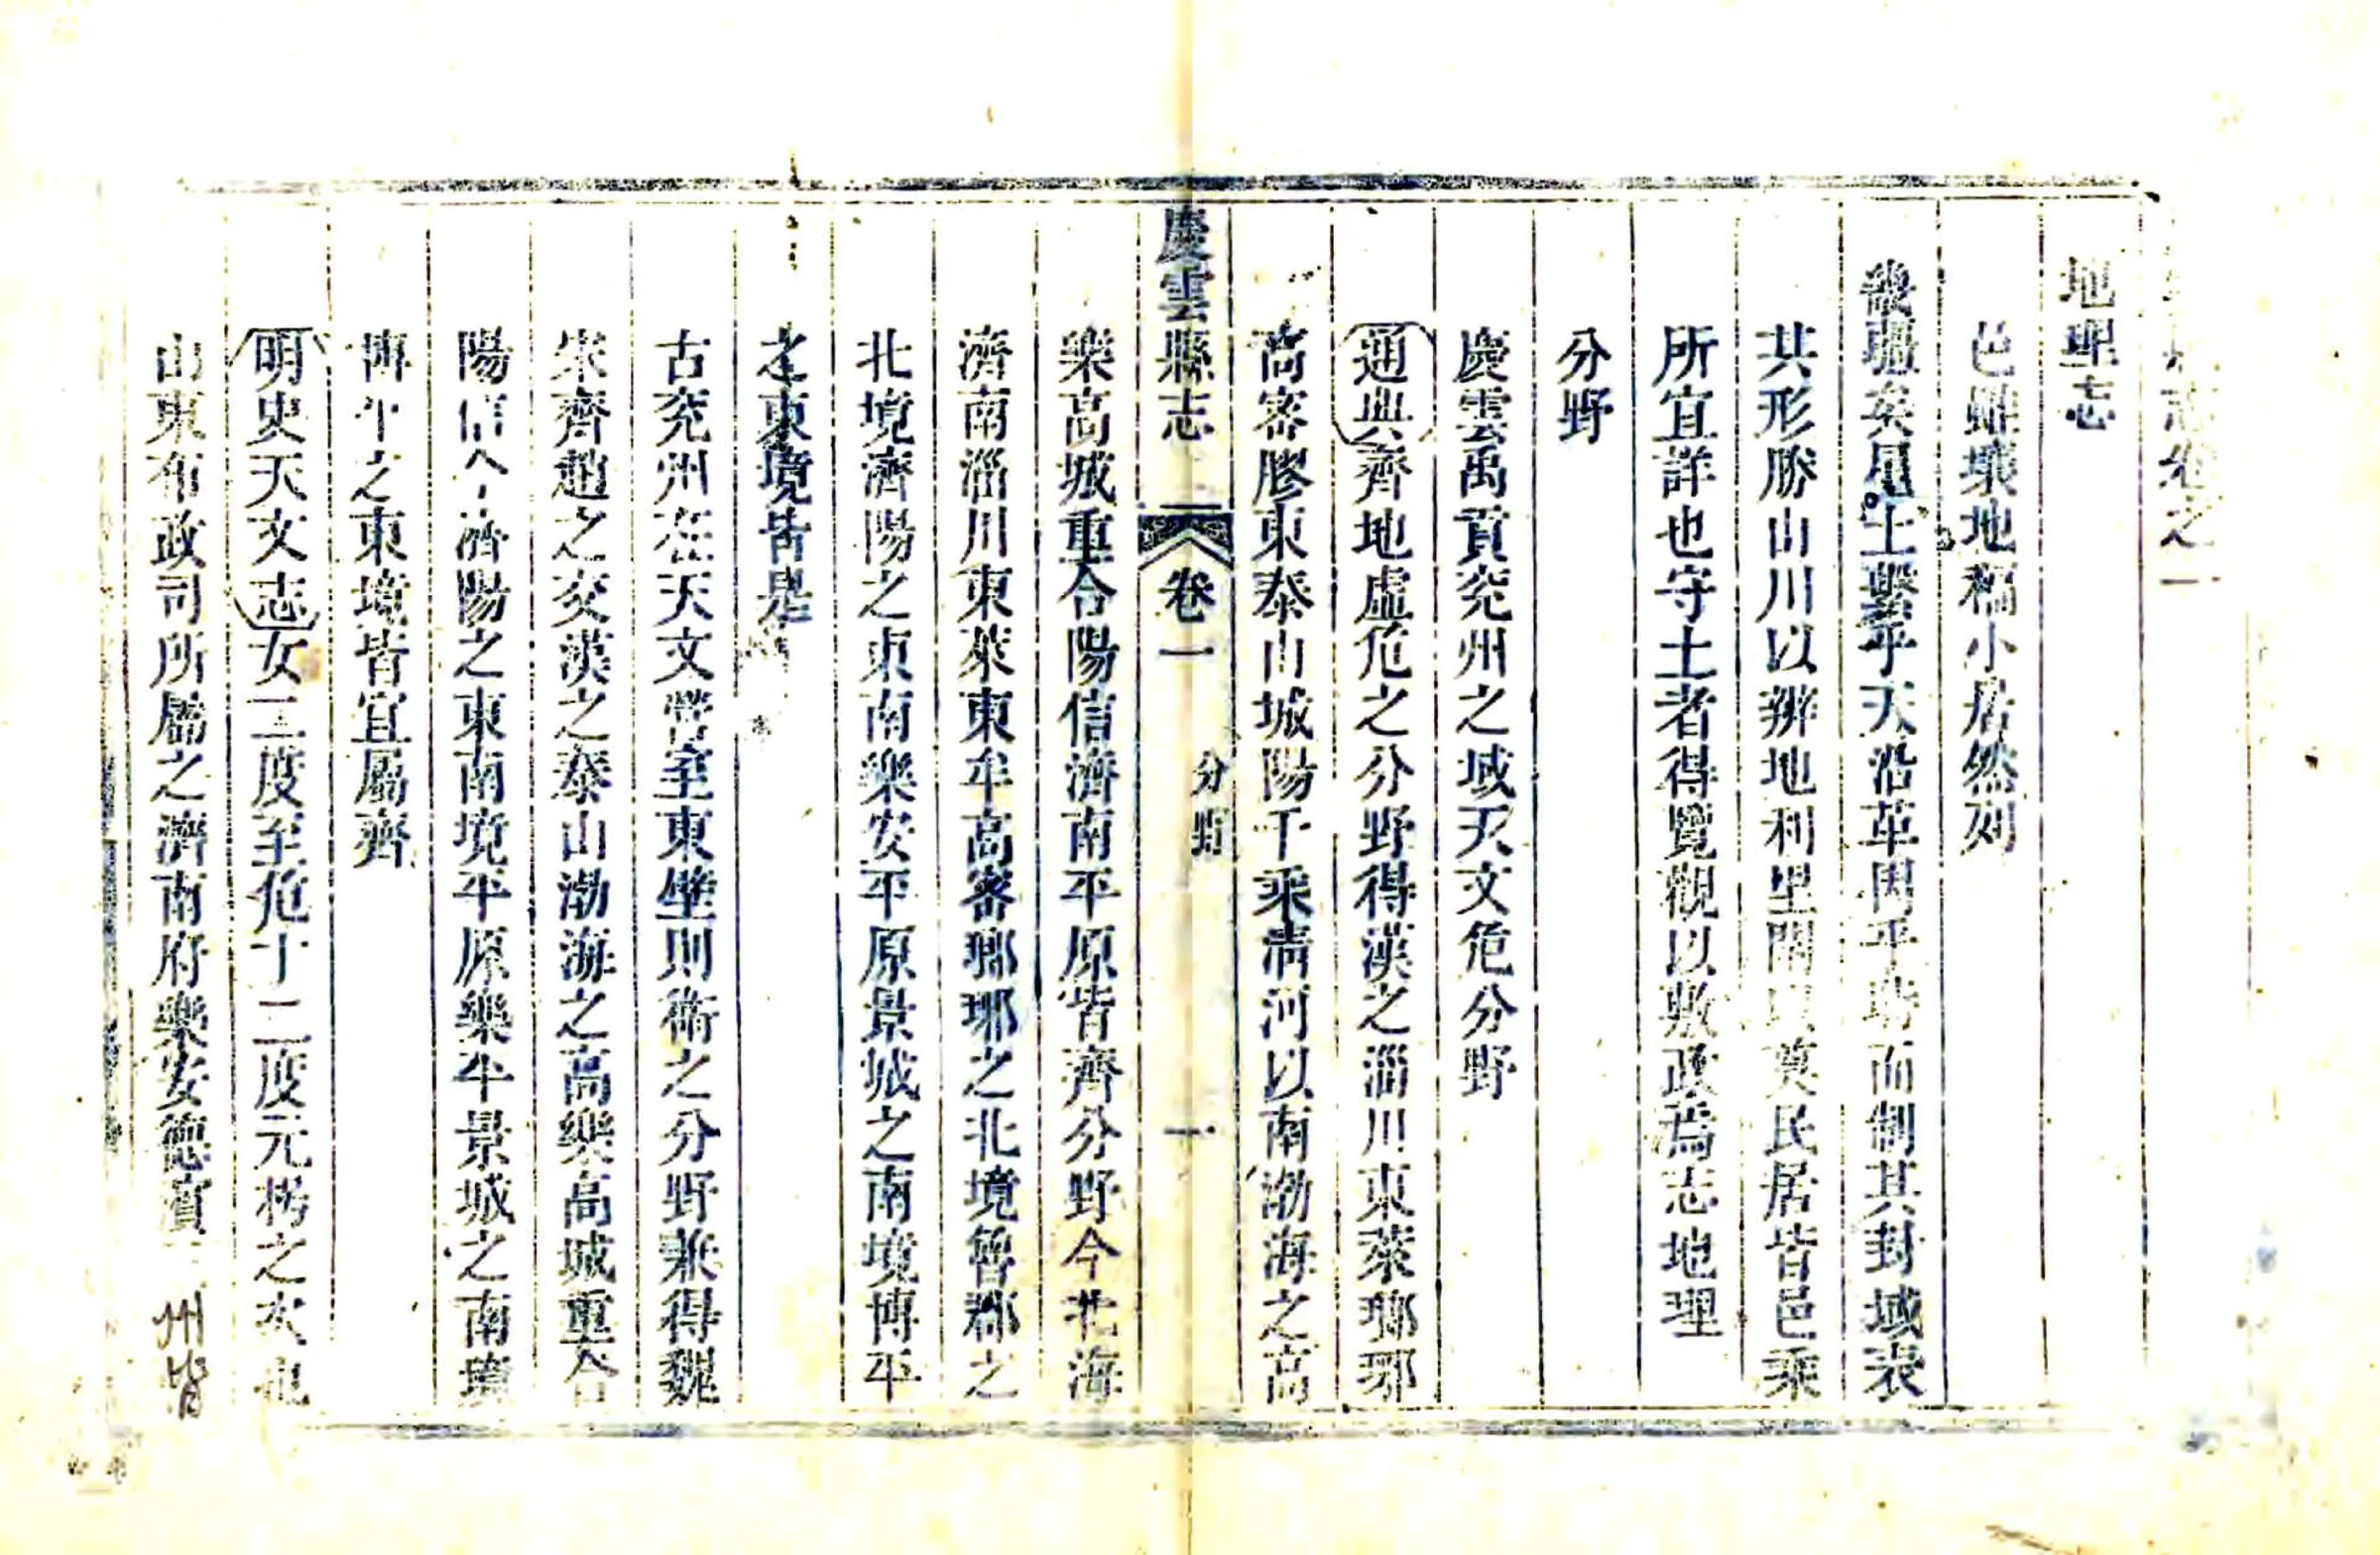 志卷之一
地理志
邑雖壤地褊小居然列
畿疆矣星土繫乎天沿革因乎時而制其封域表
其形勝山川以辨地利里閈以奠民居皆邑乘
所宜詳也守土者得覽觀以敷政焉志地理
分野
慶雲禹貢兖州之域天文危分野
通典齊地虛危之分野得漢之淄川東萊瑯琊
高密膠東泰山城陽千乘清河以南渤海之高
慶雲縣志 卷一 分野 一
樂高城重合陽信濟南平原皆齊分野今北海
濟南淄川東萊東牟高密瑯琊之北境魯郡之
北境濟陽之東南樂安平原景城之南境博平
之東境皆是
古兖州在天文營室東壁則衛之分野兼得魏
宋齊趙之交漢之泰山渤海之高樂高城重合
陽信今濟陽之東南境平原樂平景城之南境
博平之東境皆宜屬齊
明史天文志女二度至危十二度元枵之次也
山東布政司所屬之濟南府樂安德濱 州皆